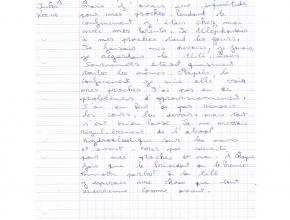 Jules
mais j'avais une inquiétude
pour mes proches. Pendant le
confinement j'étais chez moi
avec mes parents. Je téléphonais
à mes proches tous les jours.
Je faisais mes devoirs, je jouais
je regardais la télé. Les
journées étaient quasiment
toutes les mêmes. Après le
confinement je suis allé voir
mes proches. J'ai pas eu de
problèmes d'approvisionnement.
J'ai eu peur de pas réussir
les cours, les devoirs mais tout
s'est bien passé. Je me mettais
régulièrement de l'alcool
hydroalcoolique sur les mains
et avant nous par sécurité
pour mes proches et moi. A chaque
fois que le président ou le premier
ministre parlait à la télé
j'espérais une chose que tout
redevienne comme avant.